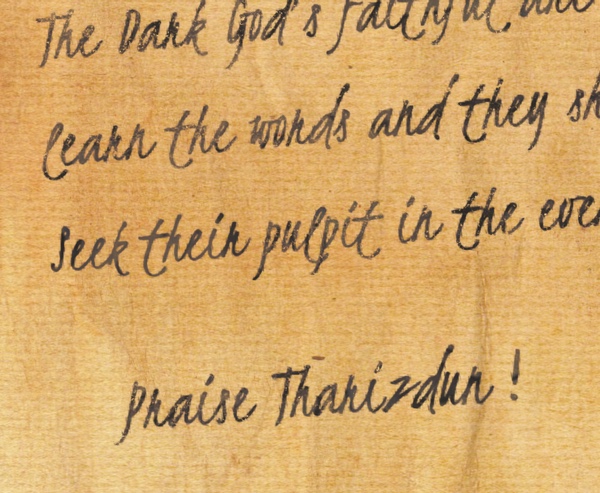 The Dark God's faithful are
learn the words and they sh
Seek their pulpit in the eve
Praise Tharizdun!